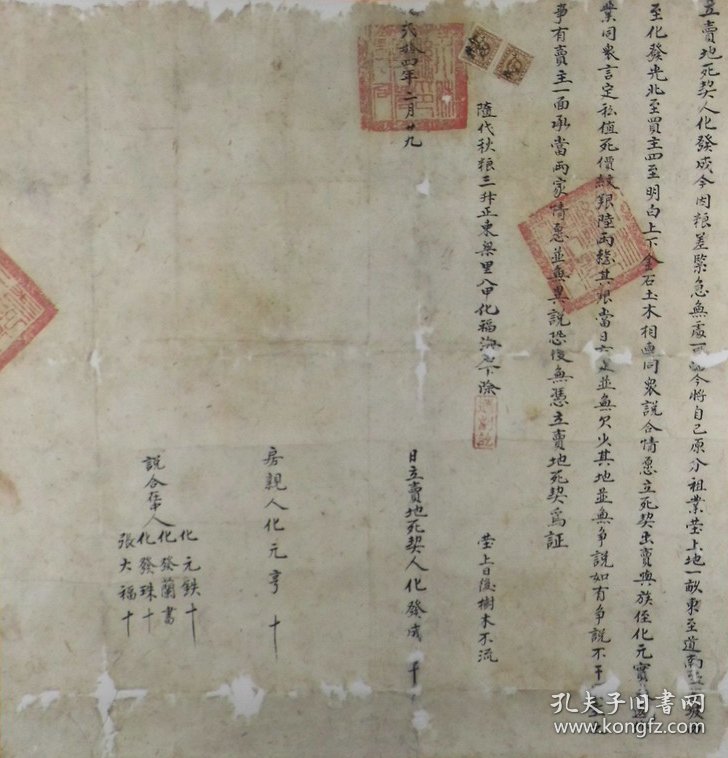 立賣地死契人化發成今因粮差緊急無處今將自己原分祖業塋上地一畝東至道南至
至化發光北至買主四至明白上下金石土木相連同衆說合情愿立死契出賣與族侄化元實
業同衆言定私值死價紋銀陸兩整其銀當日交足並無欠少其地並無爭說如有爭說不干
事有賣主一面承當兩家情愿並無異說恐後無憑立賣地死契爲証
隨代秋粮三升正東梁里八甲化福海名下除
塋上日後樹木不流
弍拾四年二月廿九日立賣地死契人化發成十
房親人化元亨十
說合人
化元鉄十
化發蘭書
化發珠十
張大福十
孔夫子旧书网
www.kongfz.com